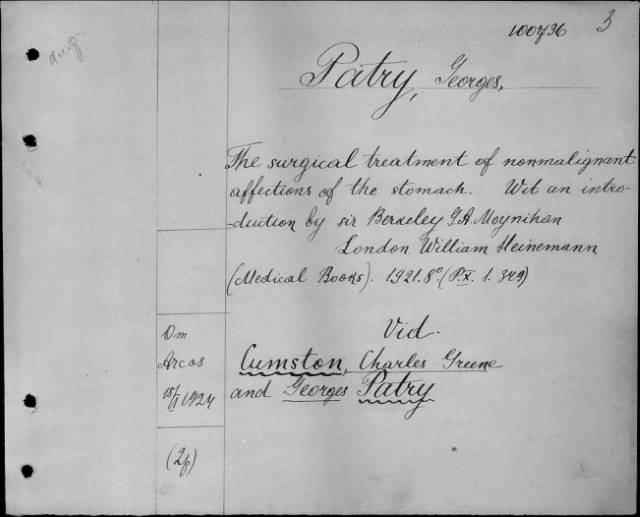 100736 3
dupl
Patry, Georges,
The surgical treatment of nonmalignant
affections of the stomach. Wit an intro-
-duction by sir Berkeley G. A. Moynihan
London William Heinemann
(Medical Books). 1921. 8º. (P. X. 1. 349)
Vid.
Cumston, Charles Greene
and Georges Patry
Om
Arcos
1924
(2f)